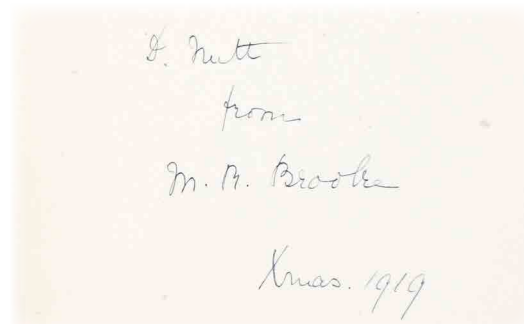 D. Nutt
from
M. R. Brooke
Xmas. 1919